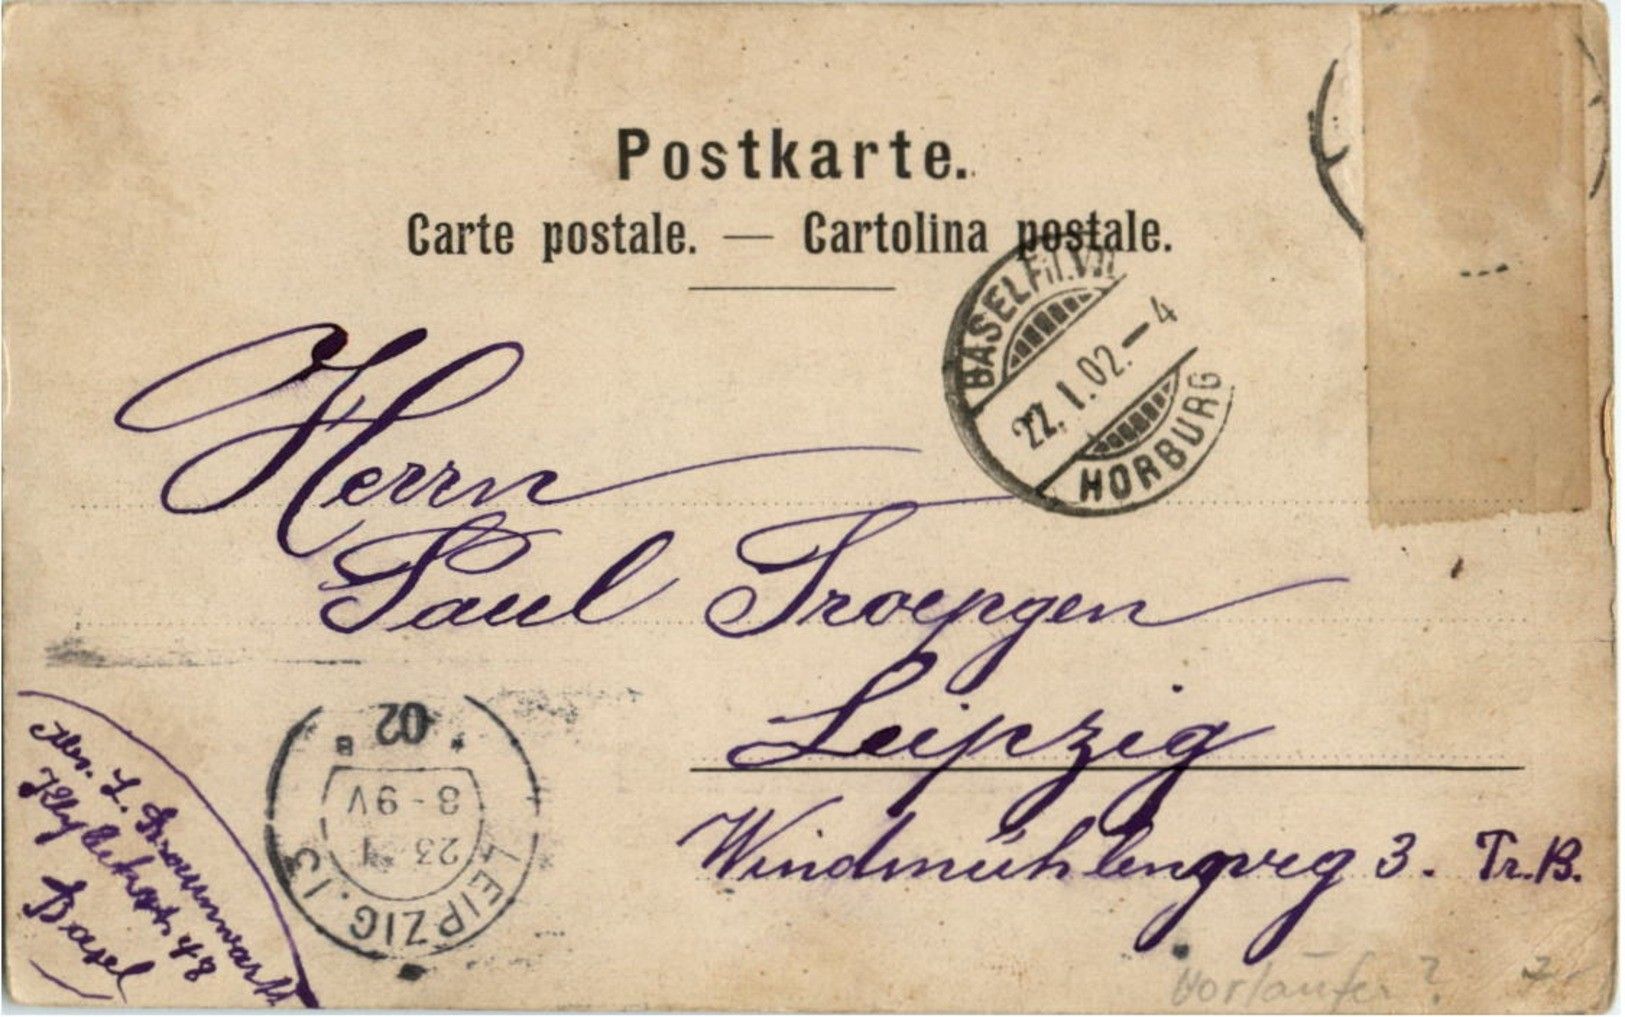 Postkarte.
Carte postale. — Cartolina postale.
BASEL Fil. VII
22. I. 02. – 4
HORBURG
Herrn
Paul Troepgen
Leipzig
Windmühlenweg 3. Tr. B.
LEIPZIG. 13
23 1
8-9V
02
B
Klybeckstr. 48
Basel
Vorläufer? 7.-